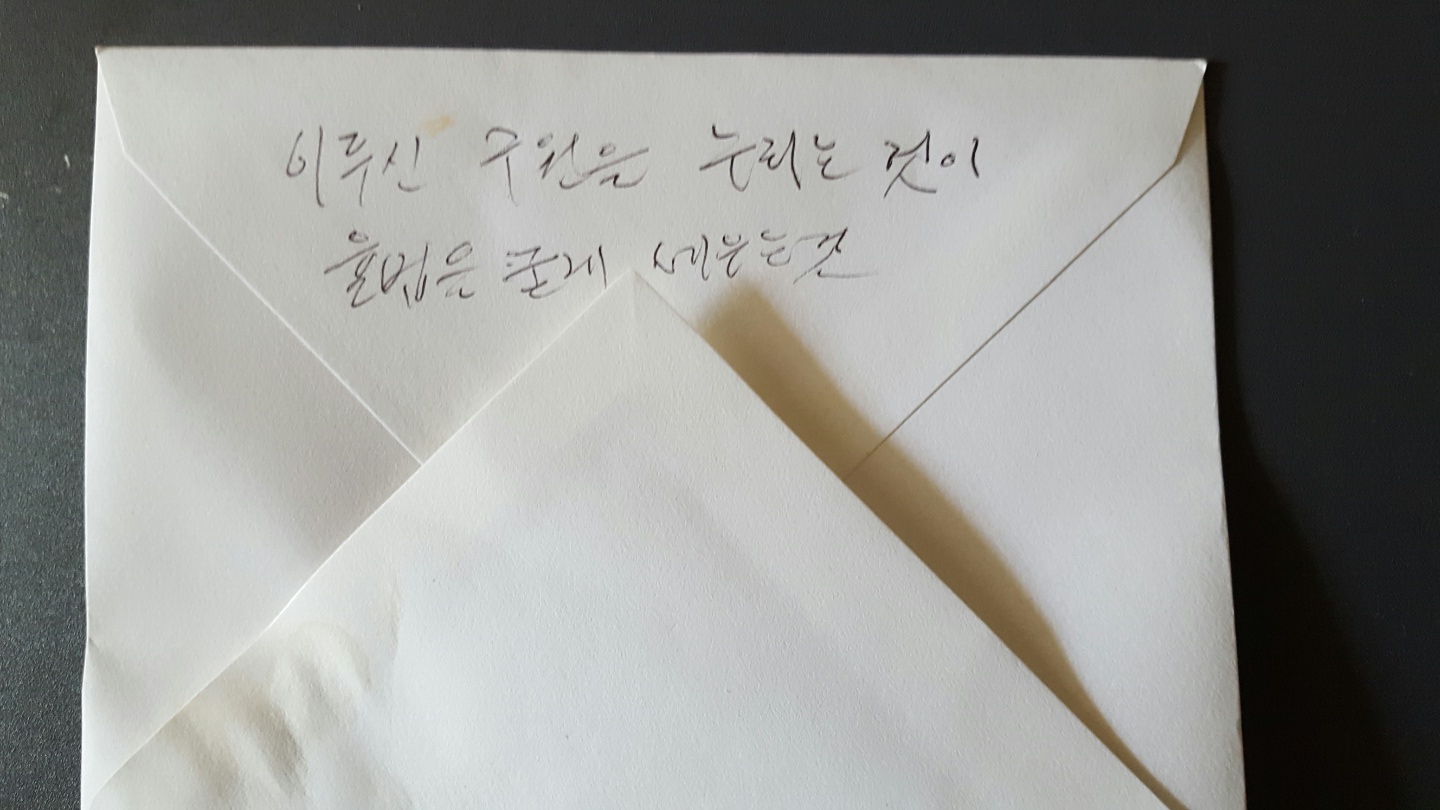 이루신 구원은 누리는 것이
율법은 굳게 세우는것